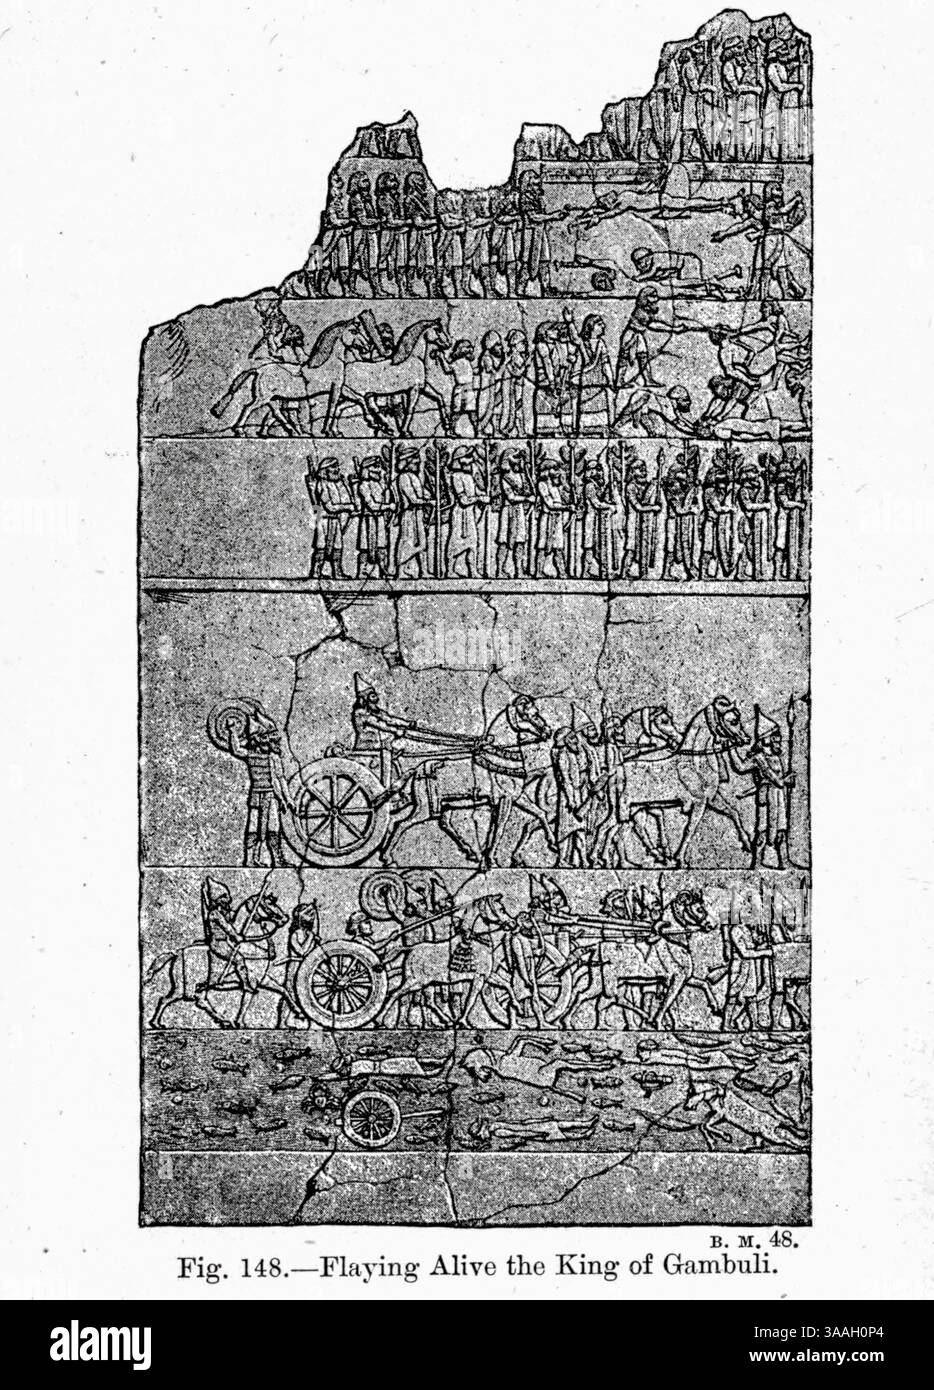 B. M. 48.
Fig. 148.—Flaying Alive the King of Gambuli.
alamy
alamy
Image ID: 3AAH0P4
www.alamy.com